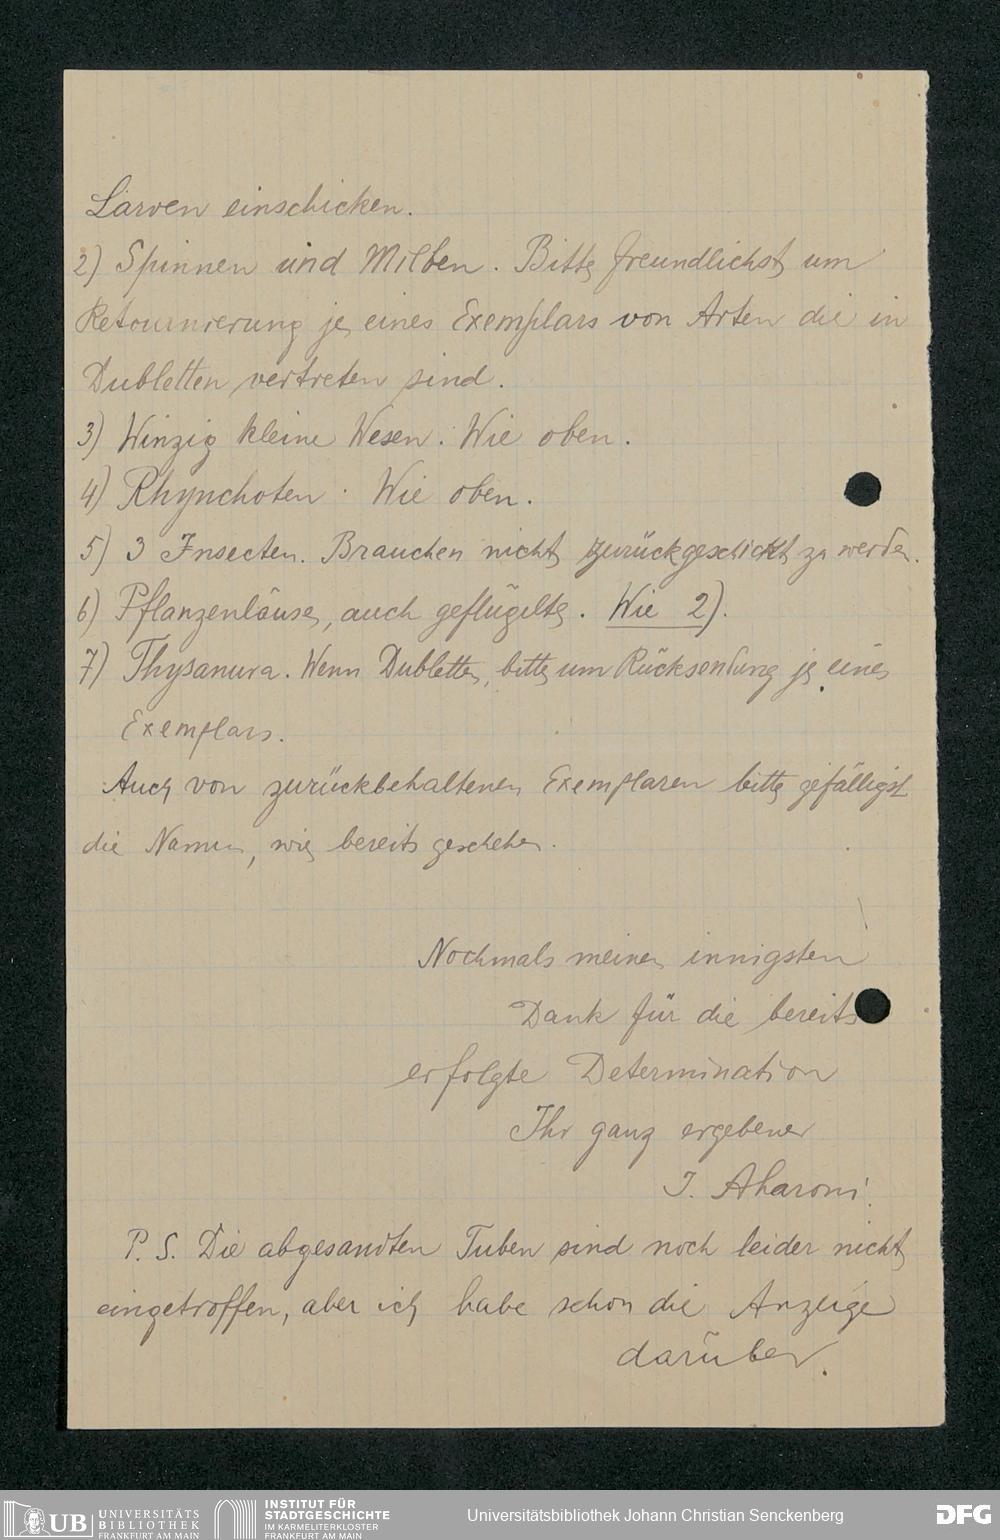 Larven einschicken.
2) Spinnen und Milben. Bitte freundlichst um
Retournierung je eines Exemplars von Arten die in
Dubletten vertreten sind.
3) Winzig kleine Wesen. Wie oben.
4) Rhynchoten. Wie oben.
5) 3 Insecten. Brauchen nicht zurückgeschickt zu werden.
6) Pflanzenläuse, auch geflügelte. Wie 2).
7) Thysanura. Wenn Dubletten, bitte um Rücksendung je eines
Exemplars.
Auch von zurückbehaltenen Exemplaren bitte gefälligst
die Namen, wie bereits geschehen.
Nochmals meinen innigsten
Dank für die bereits
erfolgte Determination
Ihr ganz ergebener
J. Aharoni.
P. S. Die abgesandten Tuben sind noch leider nicht
eingetroffen, aber ich habe schon die Anzeige
darüber.
UB UNIVERSITÄTS BIBLIOTHEK FRANKFURT AM MAIN
INSTITUT FÜR STADTGESCHICHTE IM KARMELITERKLOSTER FRANKFURT AM MAIN
Universitätsbibliothek Johann Christian Senckenberg
DFG